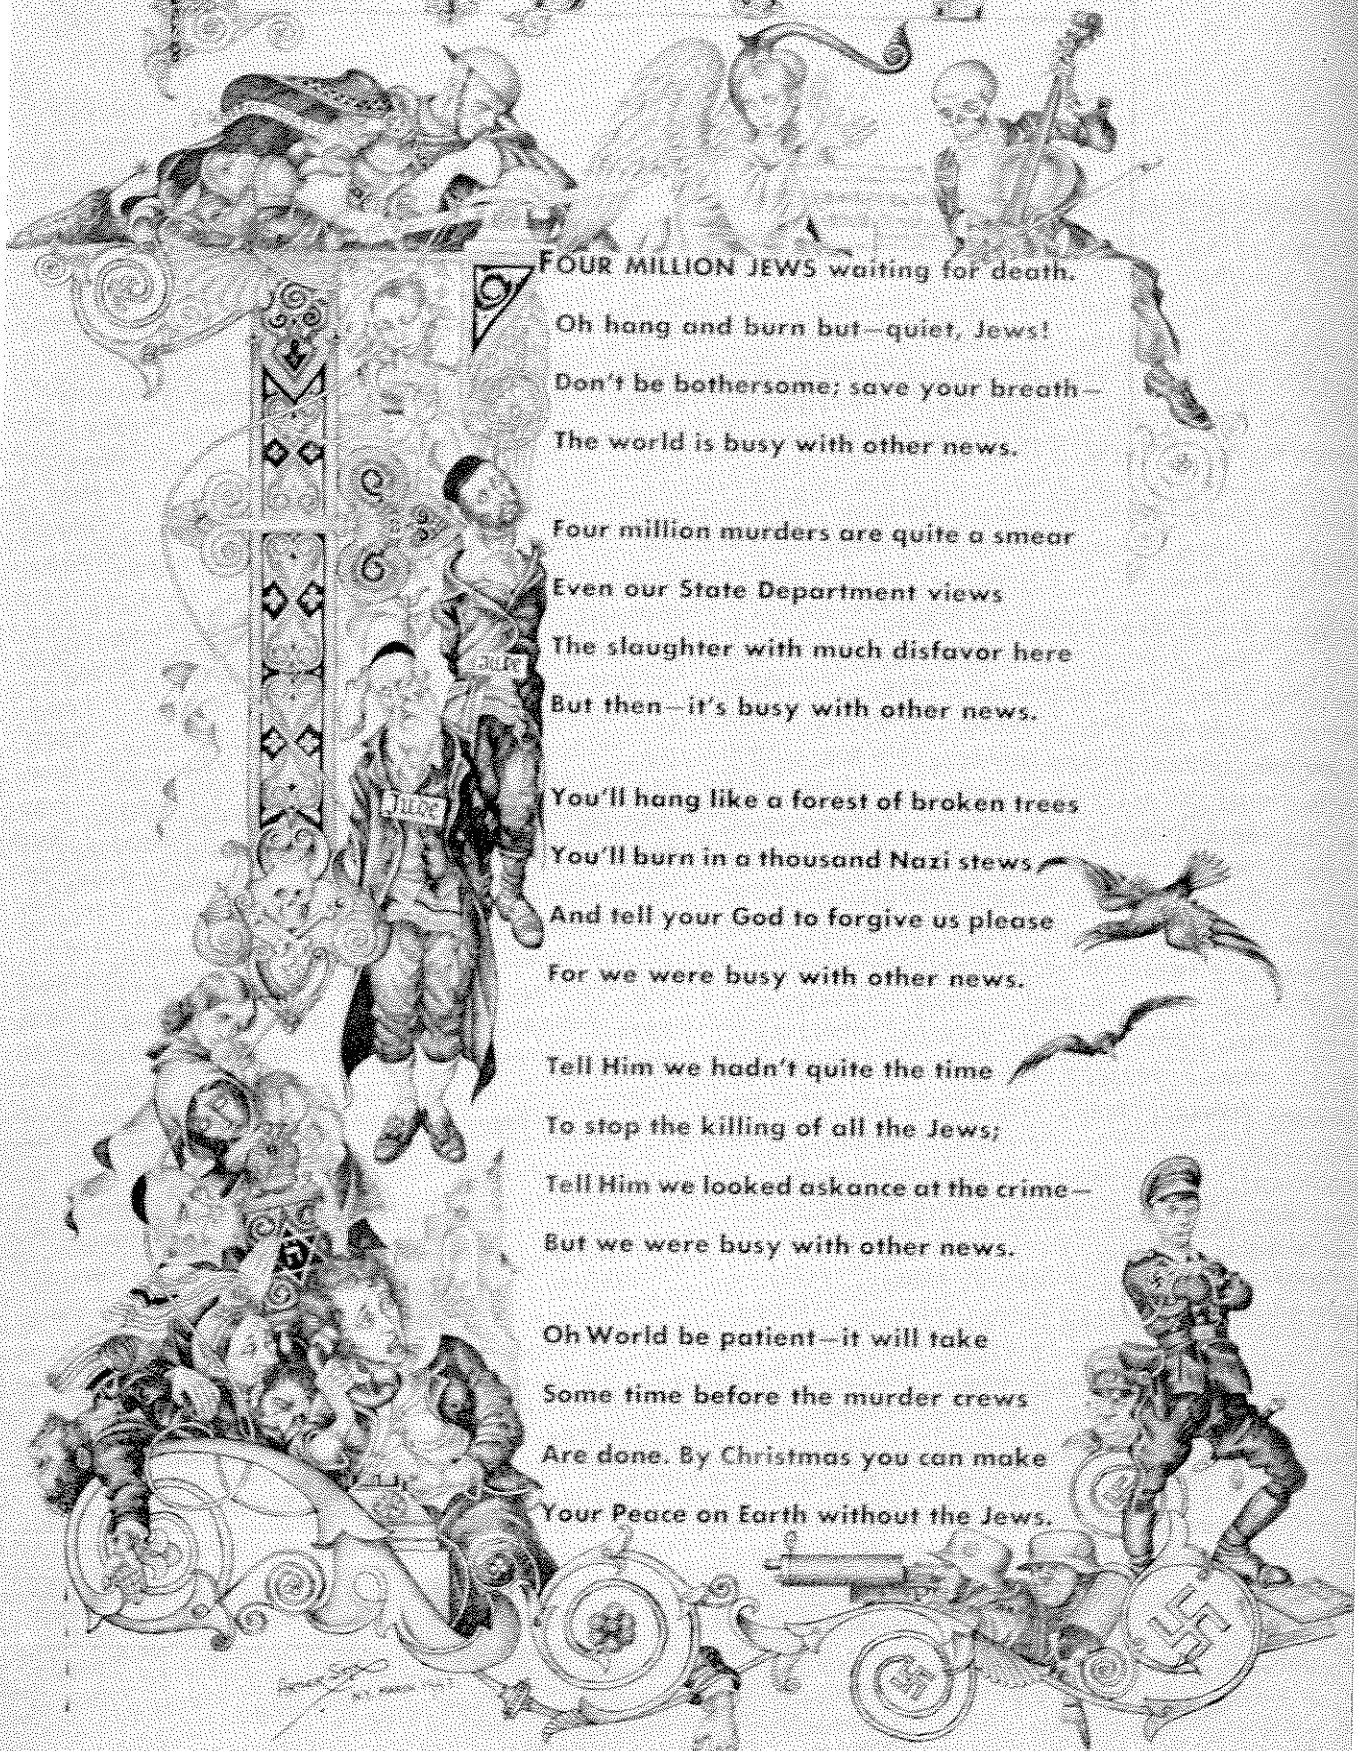 FOUR MILLION JEWS waiting for death.
Oh hang and burn but—quiet, Jews!
Don't be bothersome; save your breath—
The world is busy with other news.
Four million murders are quite a smear
Even our State Department views
The slaughter with much disfavor here
But then—it's busy with other news.
You'll hang like a forest of broken trees
You'll burn in a thousand Nazi stews
And tell your God to forgive us please
For we were busy with other news.
Tell Him we hadn't quite the time
To stop the killing of all the Jews;
Tell Him we looked askance at the crime—
But we were busy with other news.
Oh World be patient—it will take
Some time before the murder crews
Are done. By Christmas you can make
Your Peace on Earth without the Jews.
JUDE
JUDE